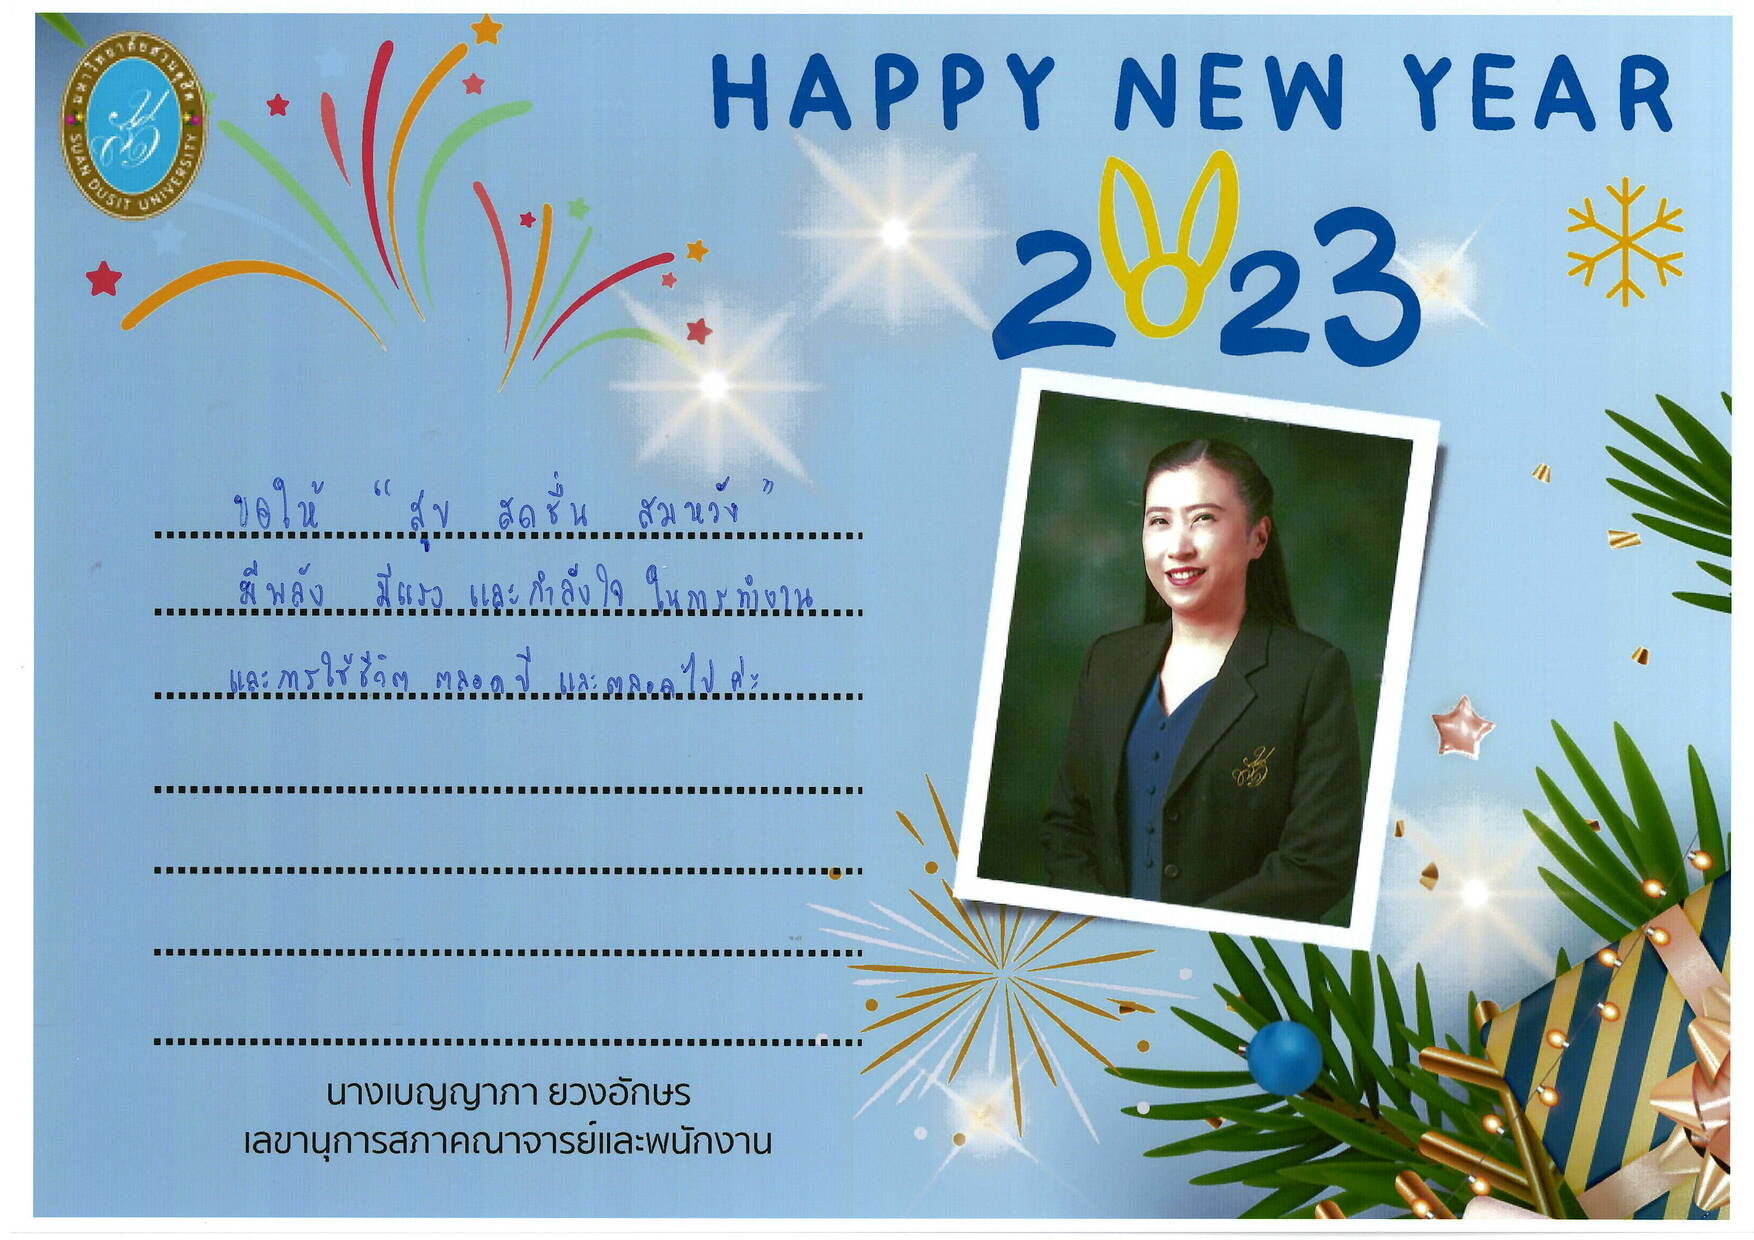 มหาวิทยาลัยสวนดุสิต
SUAN DUSIT UNIVERSITY
HAPPY NEW YEAR
2023
ขอให้ “สุข สดชื่น สมหวัง”
มีพลัง มีแรง และกำลังใจ ในการทำงาน
และการใช้ชีวิต ตลอดปี และตลอดไป ค่ะ
นางเบญญาภา ยวงอักษร
เลขานุการสภาคณาจารย์และพนักงาน